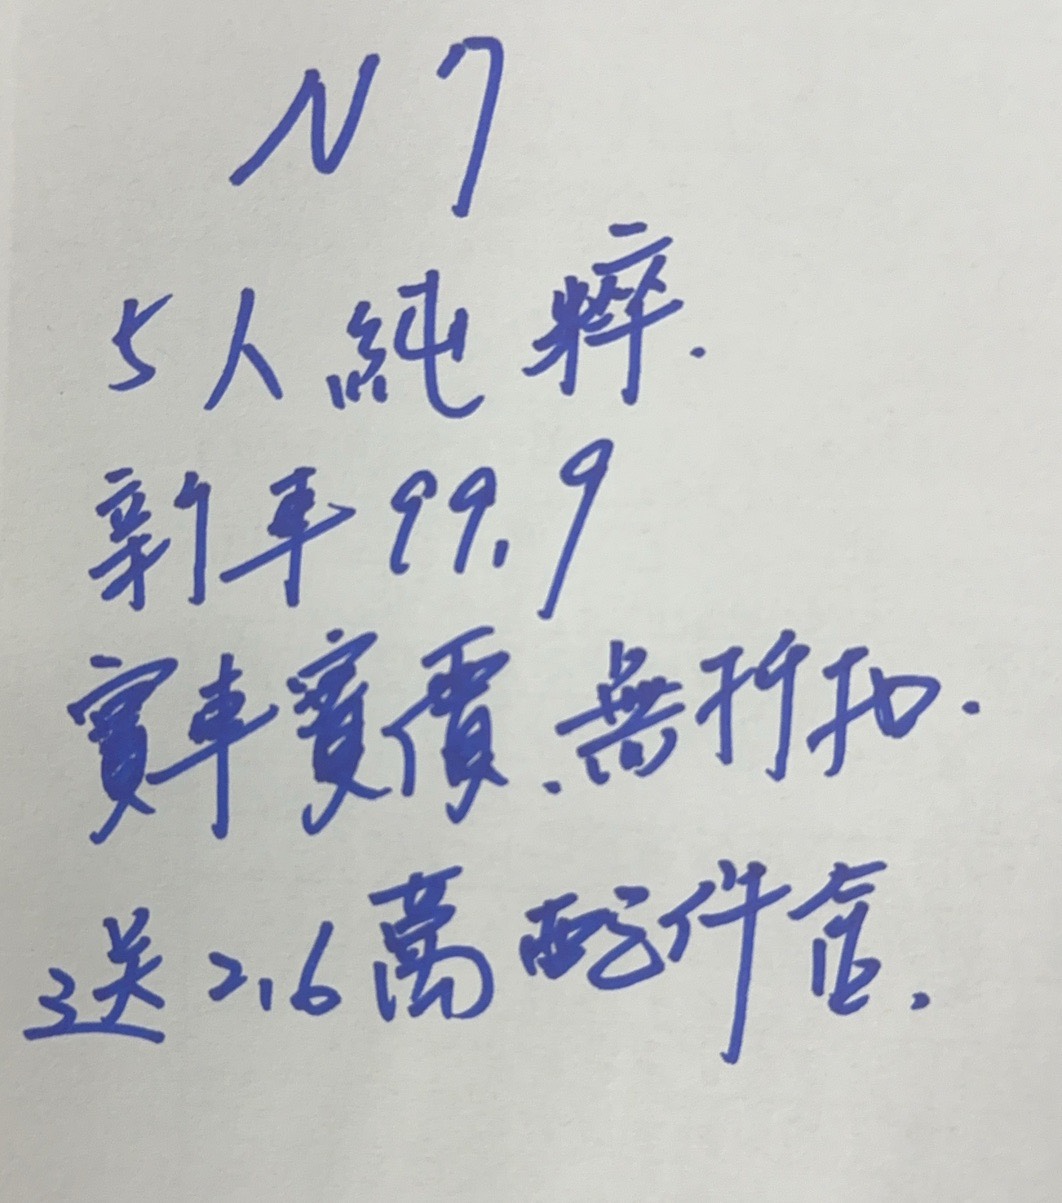 N7
5人純粹.
新車99.9
實車實價.無折扣.
送2.6萬配件金.